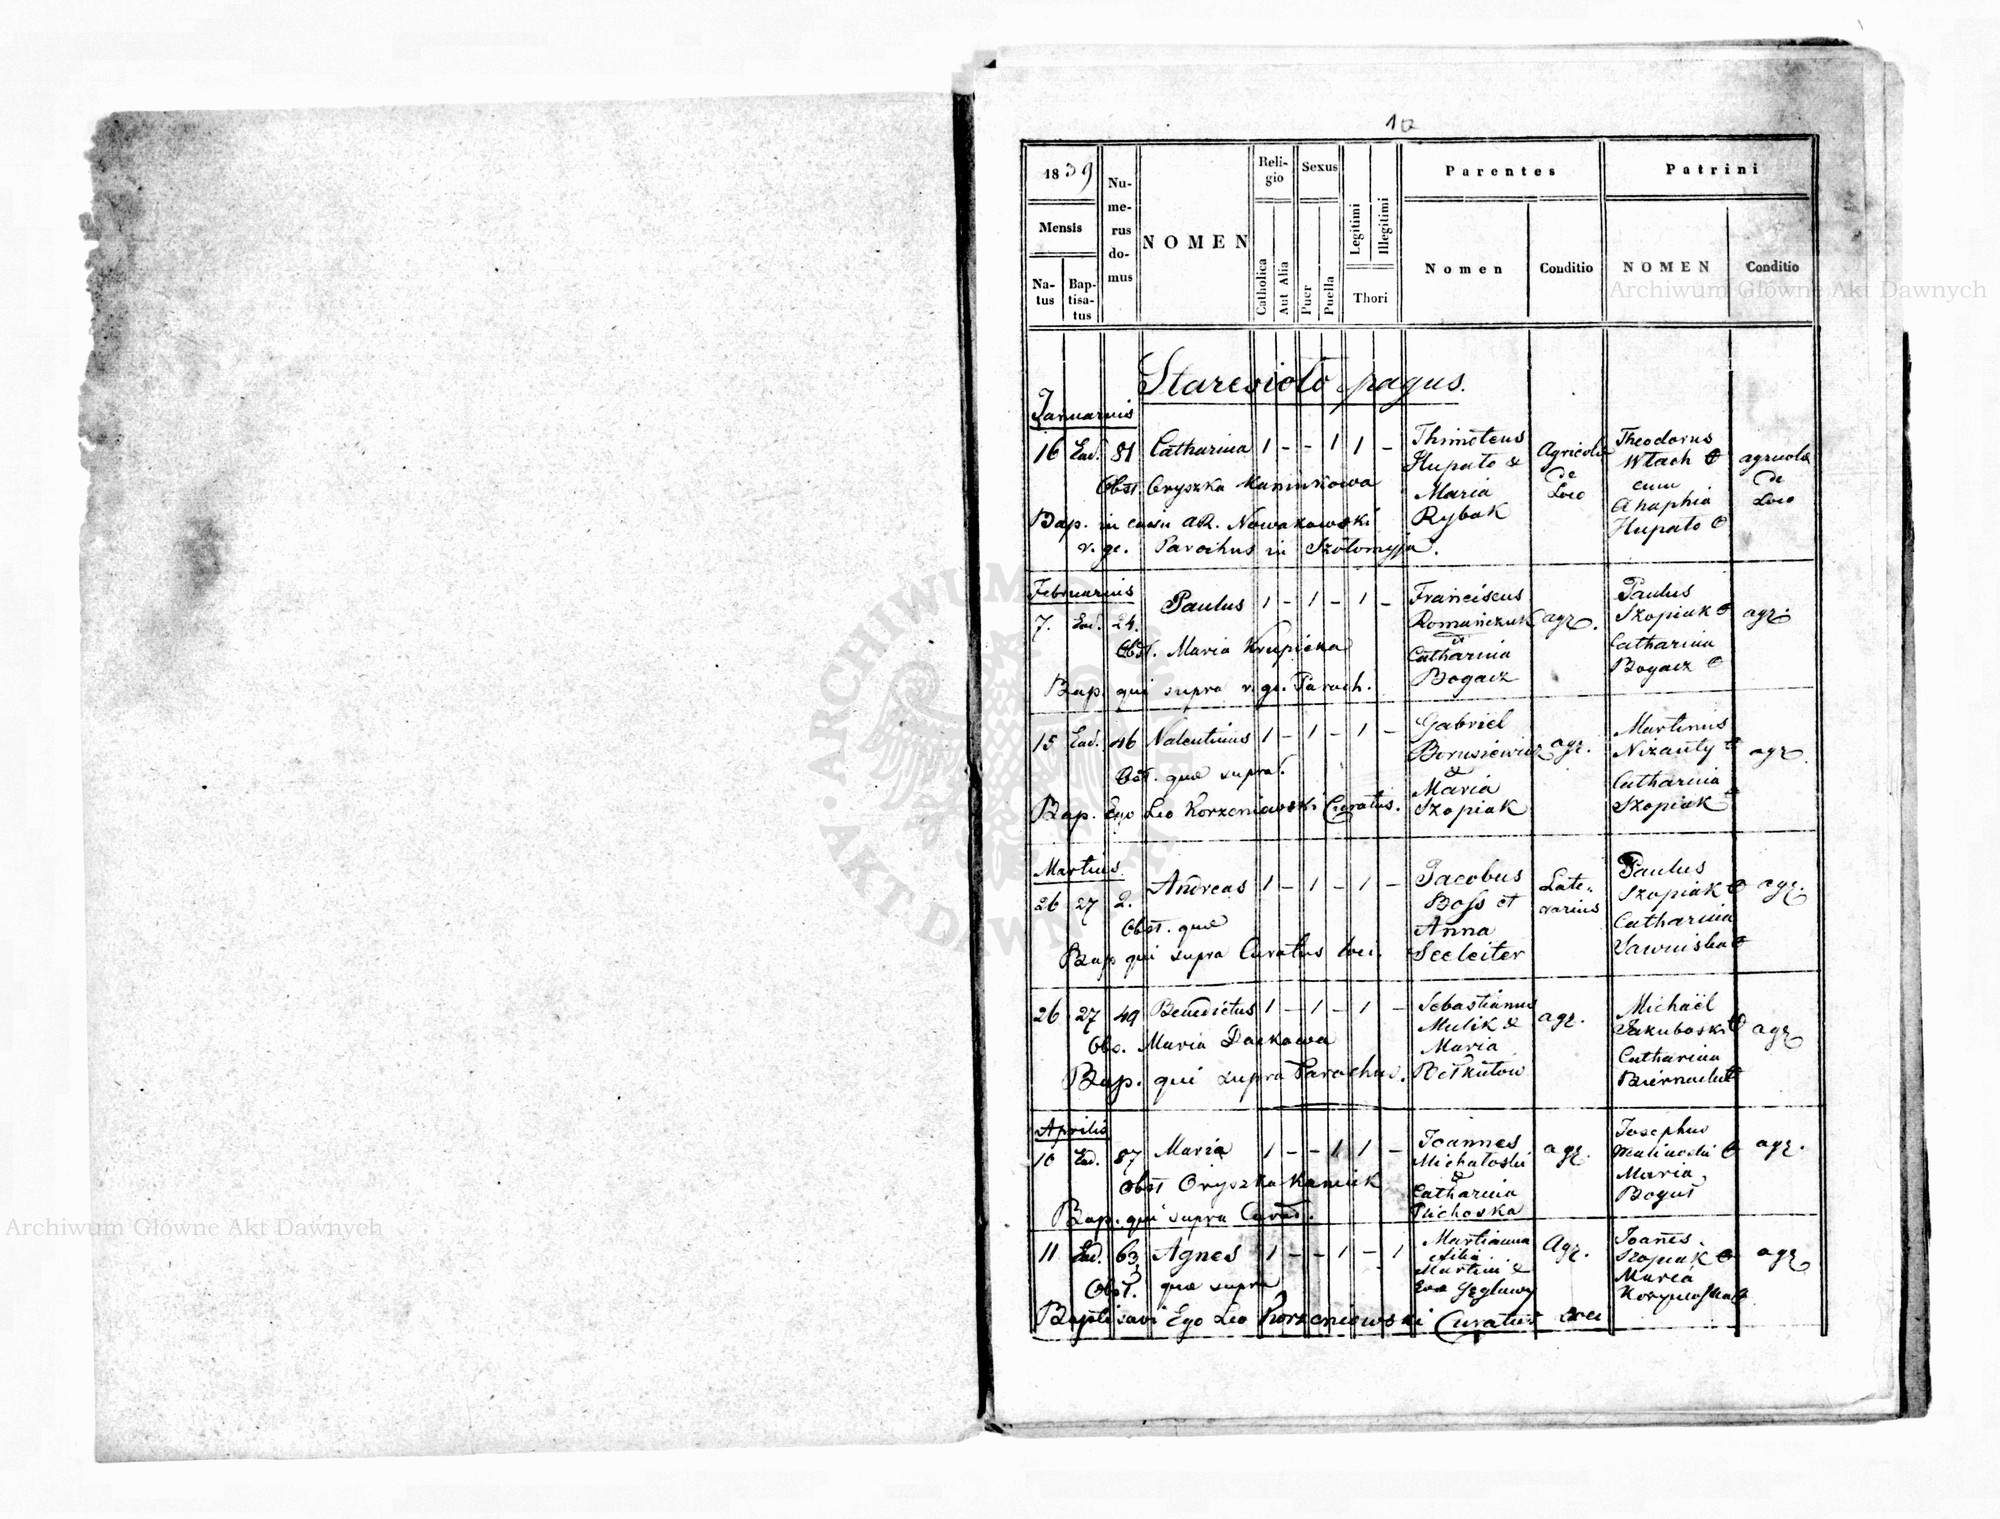 10
18 39
Mensis
Na-
tus
Bap-
tisa-
tus
Nu-
me-
rus
do-
mus
NOMEN
Reli-
gio
Catholica
Aut Alia
Sexus
Puer
Puella
Legitimi
Illegitimi
Thori
Parentes
Nomen
Conditio
Patrini
NOMEN
Conditio
Archiwum Główne Akt Dawnych
Staresioło pagus.
Januarius
16 Ead. 81 Catharina 1 - - 1 1 -
Obst. Oryszka Kaminkowa
Bap. in casu AR. Nowakowski
r. gr. Parochus in Szołomyja.
Thimoteus
Hupało &
Maria
Rybak
Agricola
de
Loco
Theodorus
Włach
cum
Ahaphia
Hupało
agricola
de
Loco
Februarius
7. Ead. 24. Paulus 1 - 1 - 1 -
Obst. Maria Krupicka
Bap. qui supra r. gr. Paroch.
Franciscus
Romańczuk
et
Catharina
Bogacz
agr.
Paulus
Szopiak
Catharina
Bogacz
agr.
15 Ead. 46 Valentinus 1 - 1 - 1 -
Obst. quæ supra.
Bap. Ego Leo Korzeniowski Curatus.
Gabriel
Borusiewicz
&
Maria
Szopiak
agr.
Martinus
Nizanty
Catharina
Szopiak
agr.
Martius.
26 27 2. Andreas 1 - 1 - 1 -
Obst. quæ
Bap qui supra Curatus loci.
Jacobus
Boss et
Anna
Seeleiter
Late-
rarius
Paulus
Szopiak
Catharina
agr.
26 27 49 Benedictus 1 - 1 - 1 -
Obs. Maria Dackowa
Bap. qui supra Parochus.
Sebastianus
Mulik &
Maria
agr.
Michaël
Jakuboski
Catharina
agr
Aprilis
10 Ead. 87 Maria 1 - - 1 1 -
Obst Oryszka Kamiuk
Bap. qui supra Curat.
Joannes
Michałoski
&
Catharina
Plichoska
agr.
Josephus
Malinoski
Maria
Boguś
agr.
11 Ead. 63 Agnes 1 - - 1 - 1
Obst. quæ supra
Baptisavi Ego Leo Korzeniowski Curatus loci
Marianna
filia
Martini &
Evæ
Agr.
Joanes.
Szopiak
Maria
agr
Archiwum Główne Akt Dawnych
ARCHIWUM GŁÓWNE AKT DAWNYCH